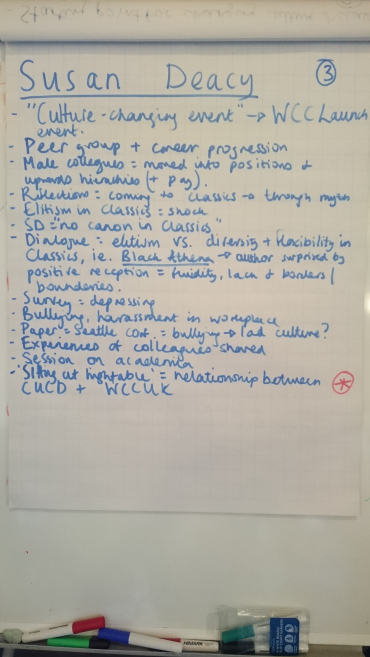 Susan Deacy ③
- "Culture-changing event" → WCC Launch
event.
- Peer group + career progression
- Male collegues = moved into positions +
upwards hierarchies (+ pay).
- Reflections = coming to classics → through myth
- Elitism in Classics = shock
- SD = "no canon in Classics"
- Dialogue = elitism vs. diversity + flexibility in
Classics, i.e. Black Athena → author surprised by
positive reception = fluidity, lack of borders/
boundaries.
- Survey = depressing
- Bullying, harassment in workplace
- Paper = Seattle conf. = bullying → lad culture?
- Experiences of colleagues shared
- Session on academia
- 'Sitting at hightable' = relationship between
CUCD + WCCUK